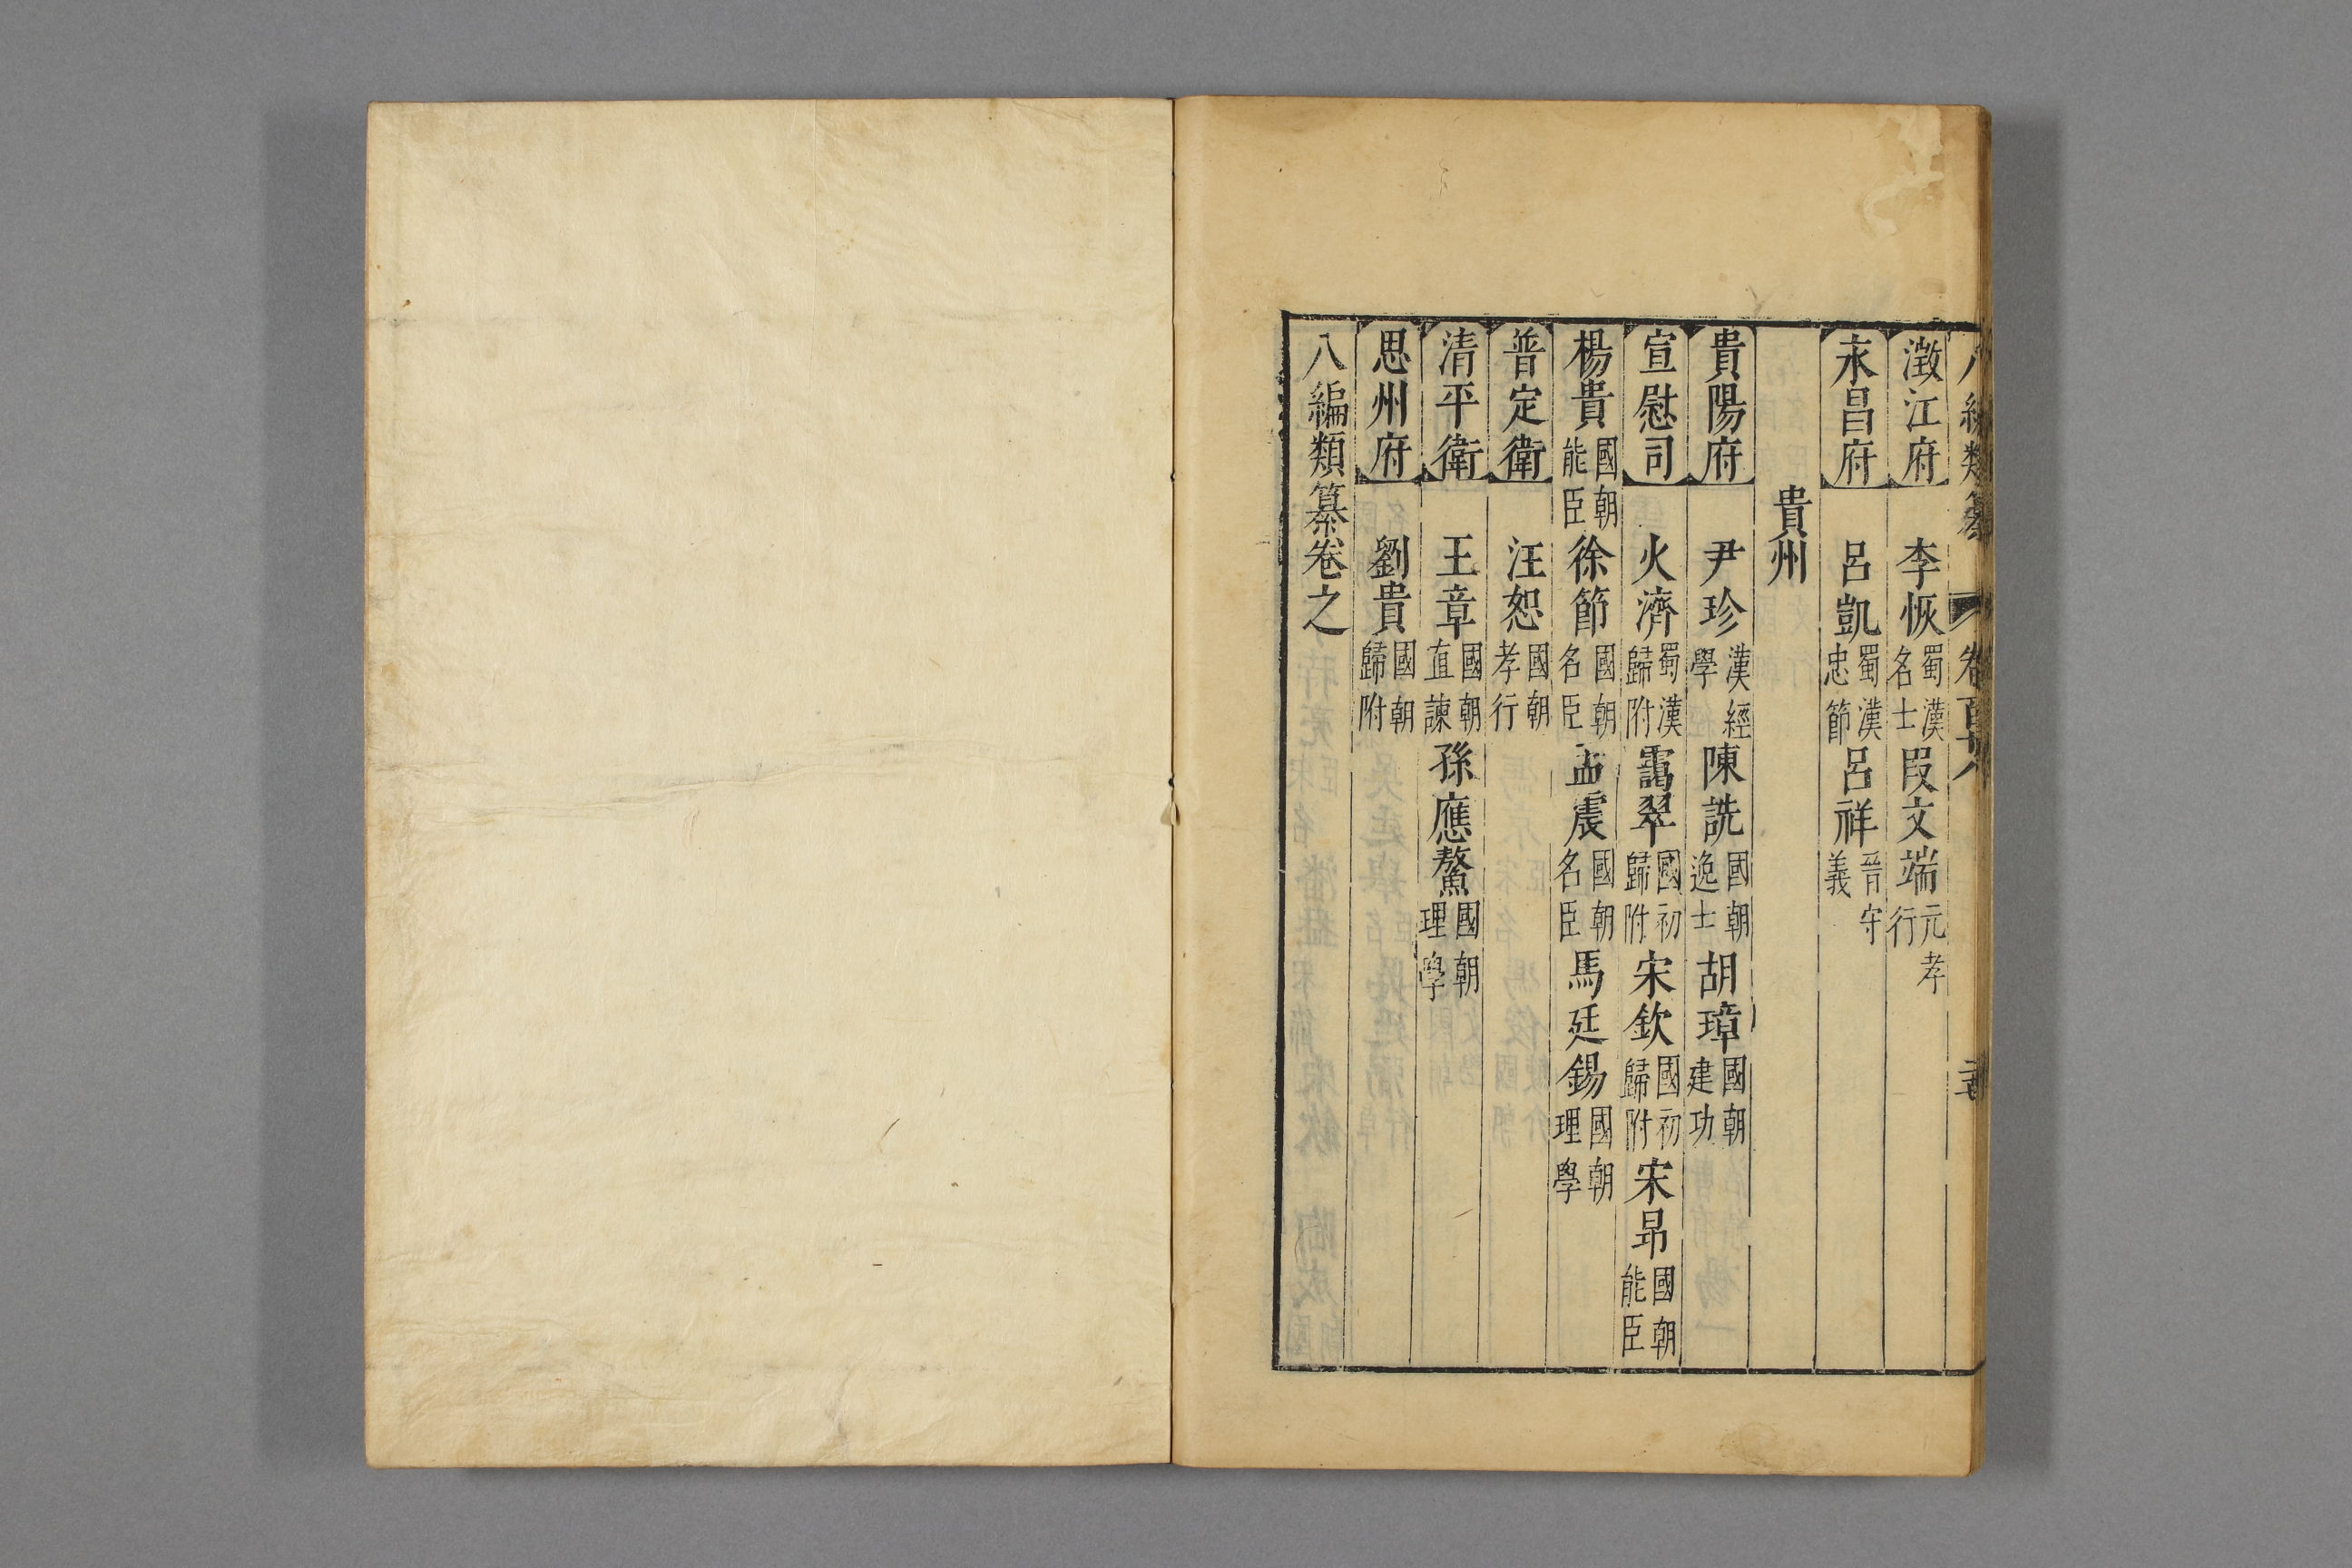 八編類纂 卷百十八
澂江府 李恢蜀漢名士 段文端元孝行
永昌府 呂凱蜀漢忠節 呂祥晉守義
貴州
貴陽府 尹珍漢經學 陳詵國朝逸士 胡璋國朝建功
宣慰司 火濟蜀漢歸附 靄翠國初歸附 宋欽國初歸附 宋昻國朝能臣
楊貴國朝能臣 徐節國朝名臣 孟震國朝名臣 馬廷錫國朝理學
普定衛 汪恕國朝孝行
清平衛 王章國朝直諫 孫應鰲國朝理學
思州府 劉貴國朝歸附
八編類纂卷之